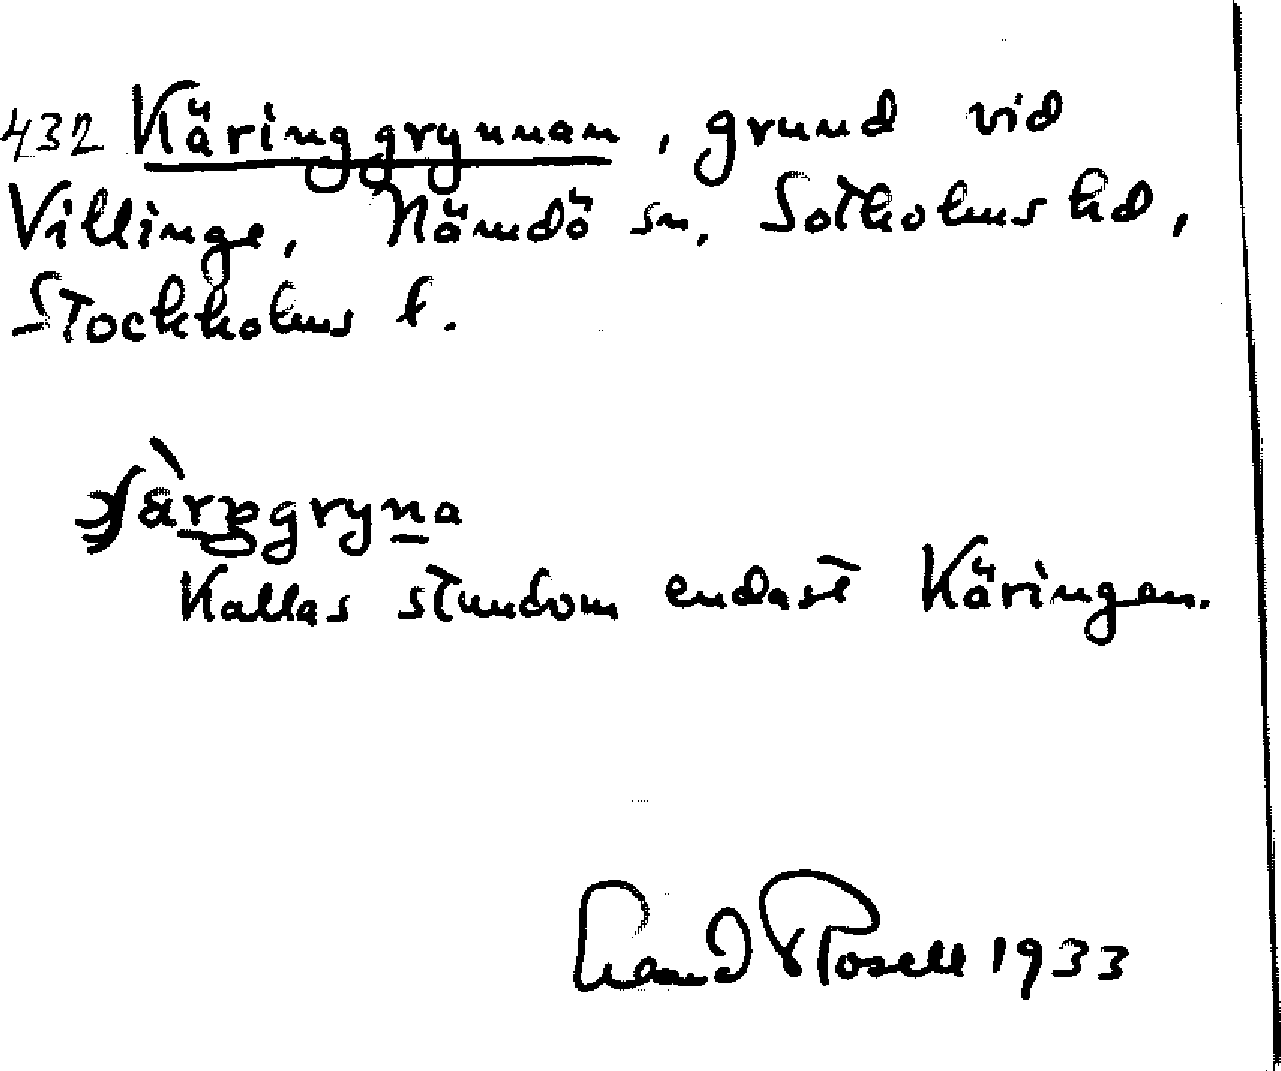 432 Käringgrynnan, grund vid
Villinge, Nämdö sn, Sotholms hd,
Stockholms l.
Kallas stundom endast Käringen.
Rosell 1933